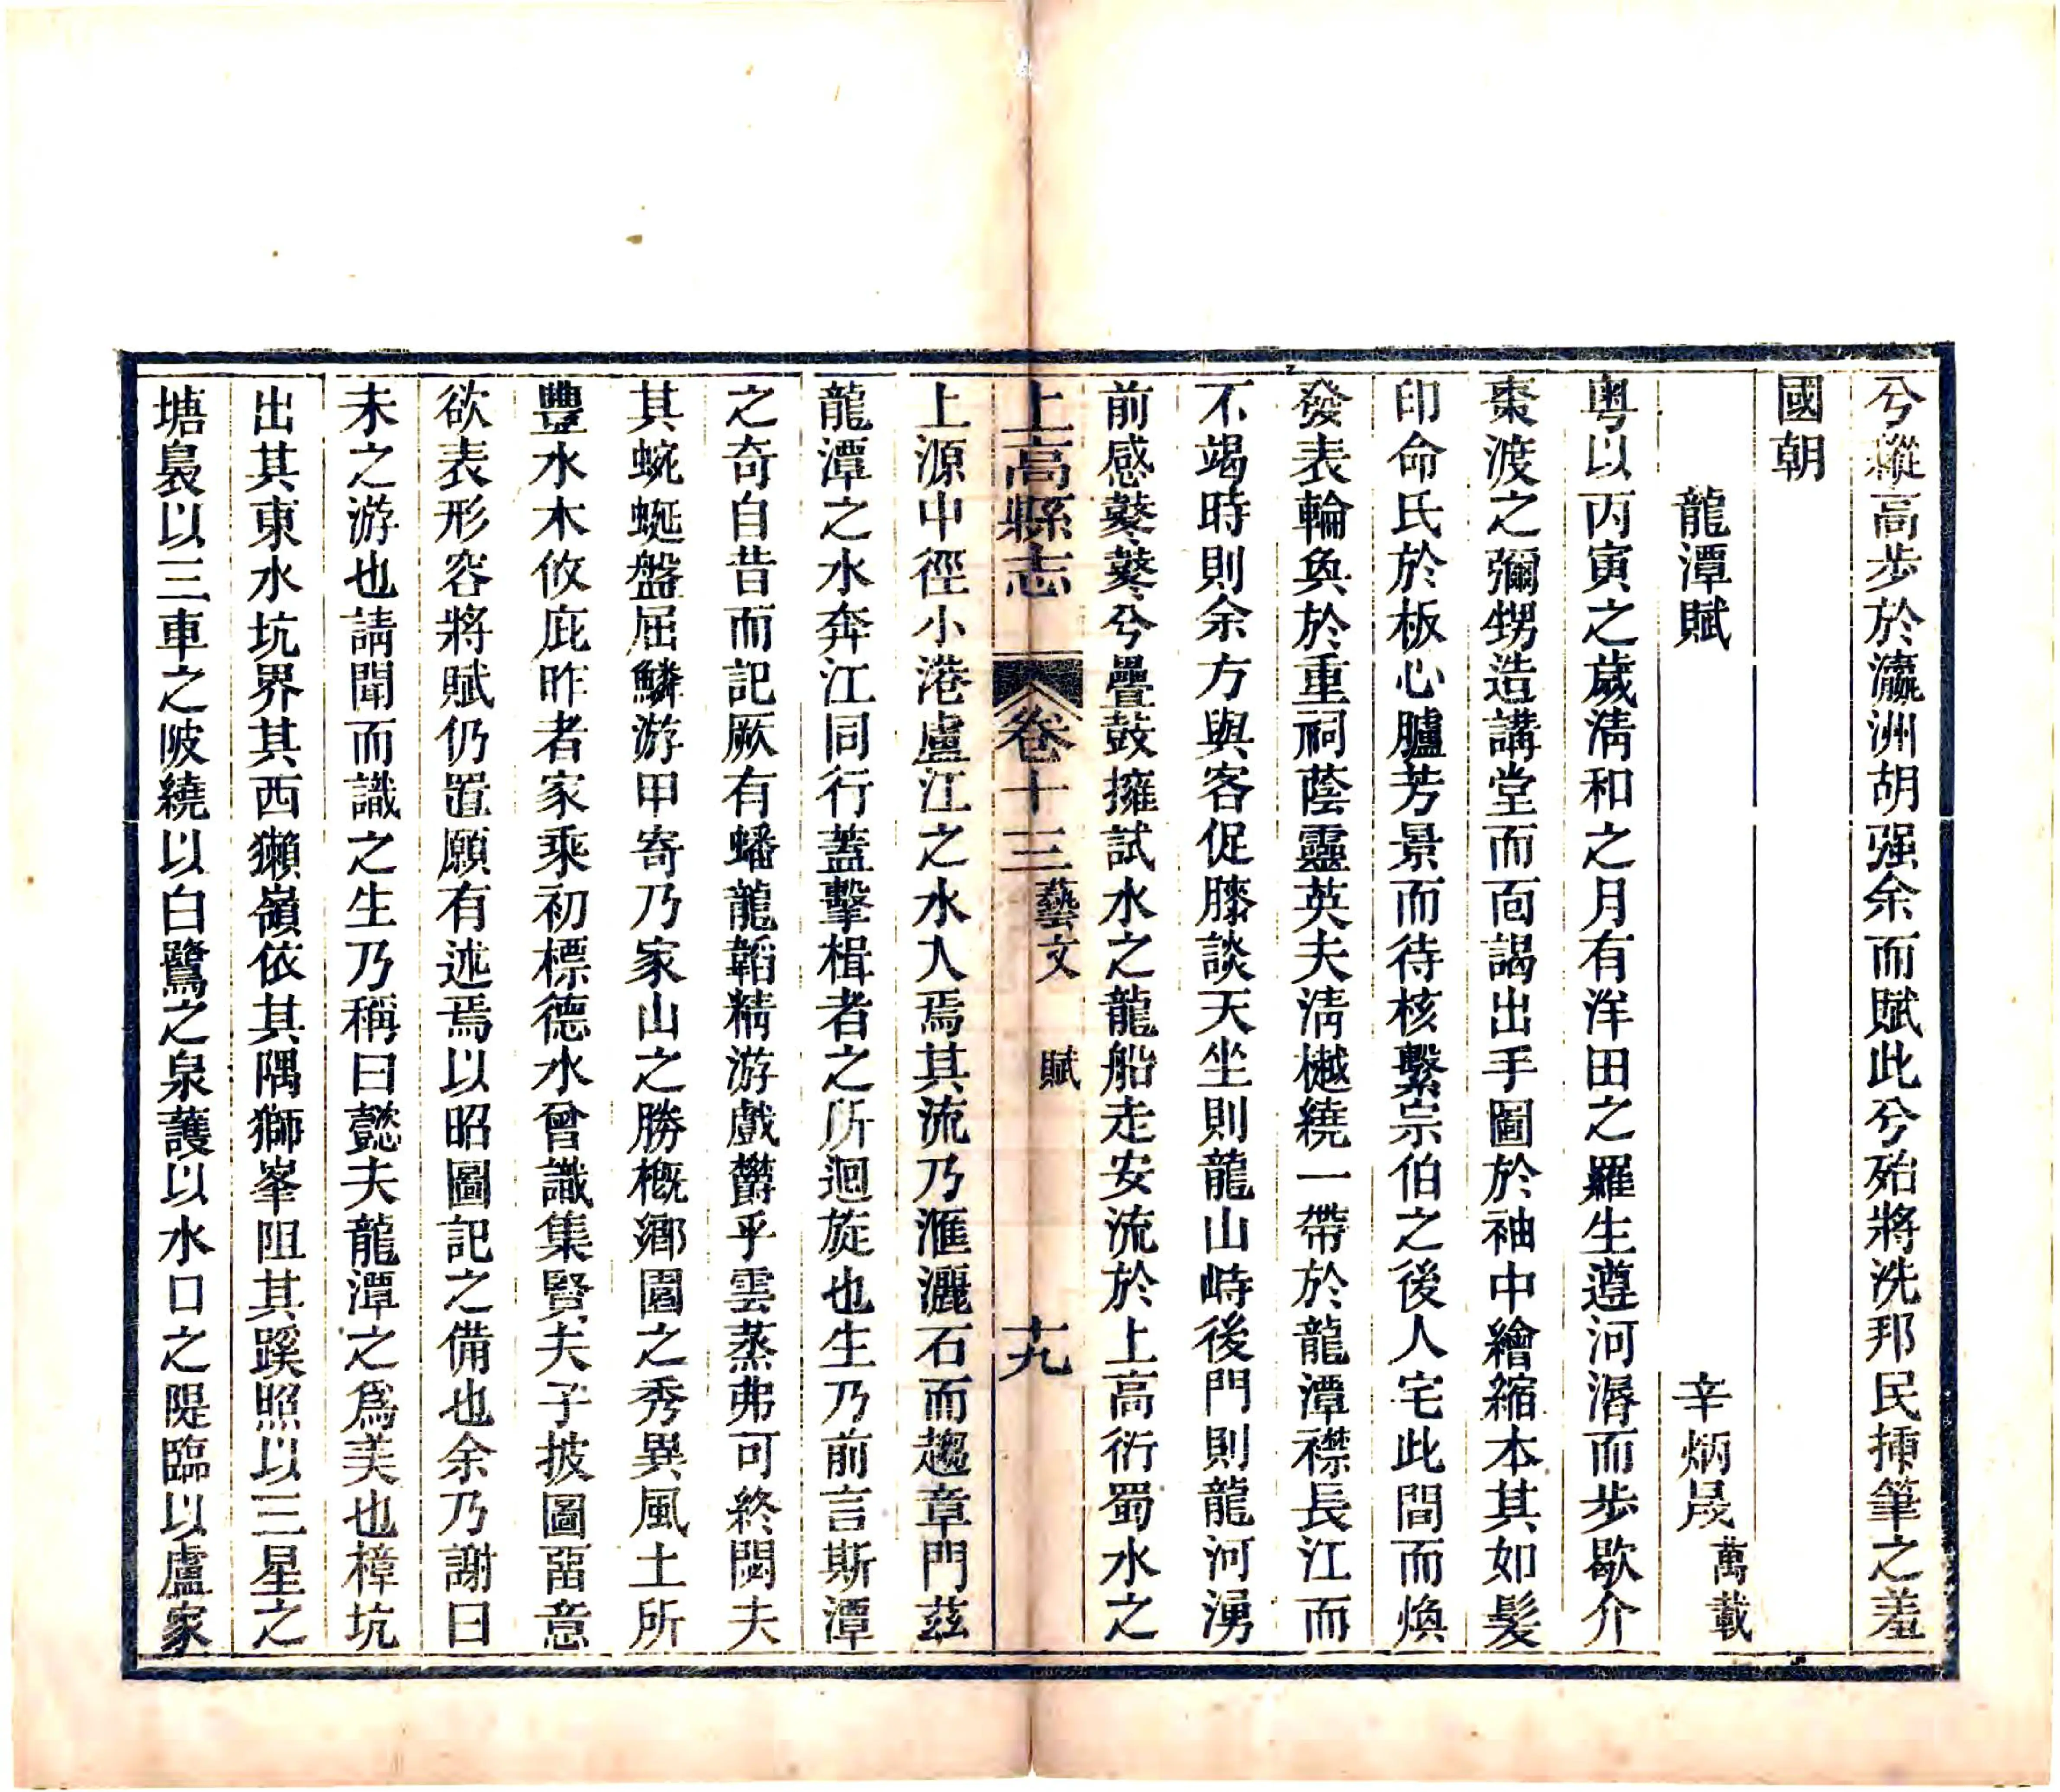 兮縱高步於瀛洲胡强余而賦此兮殆將洗邦民揷筆之羞
國朝
龍潭賦　辛炳晟萬載
粤以丙寅之歲淸和之月有洋田之羅生遵河漘而步歇介
棗渡之彌甥造講堂而面謁出手圖於袖中繪縮本其如髮
印命氏於板心臚芳景而待核繫宗伯之後人宅此間而煥
發表輪奐於重祠蔭靈英夫淸樾繞一帶於龍潭襟長江而
不竭時則余方與客促膝談天坐則龍山峙後門則龍河湧
前感鼕鼕兮疊鼓擁試水之龍船走安流於上高衍蜀水之
上高縣志　卷十三藝文　賦　十九
上源中徑小港盧江之水入焉其流乃滙灑石而趨章門茲
龍潭之水奔江同行蓋擊楫者之所迴旋也生乃前言斯潭
之奇自昔而記厥有蟠龍韜精游戲欝乎雲蒸弗可終閟夫
其蜿蜒盤屈鱗游甲寄乃家山之勝概鄉園之秀異風土所
豐水木攸庇昨者家乘初標德水曾識集賢夫子披圖畱意
欲表形容將賦仍置願有述焉以昭圖記之備也余乃謝曰
未之游也請聞而識之生乃稱曰懿夫龍潭之爲美也樟坑
出其東水坑界其西獺嶺依其隅獅峯阻其蹊照以三星之
塘裊以三車之陂繞以白鷺之泉護以水口之隄臨以盧家